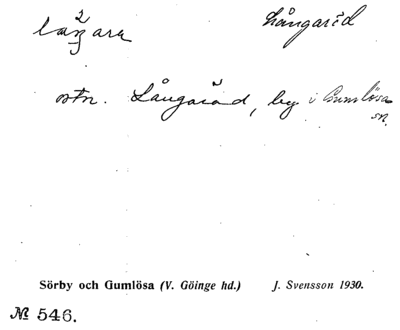 Långaröd
ortn. Långaröd, by i Gumlösa
sn.
Sörby och Gumlösa (V. Göinge hd.) J. Svensson 1930.
№ 546.